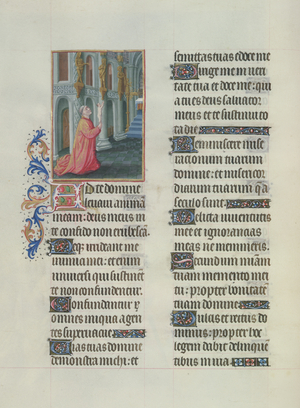 Ad te domine
levavi animā
meam: deus meus in
te confido non erubescā.
Neqꝫ irrideant me
inimici mei: etenim
universi qui sustinēt
te non confundentur.
Confundantur
omnes iniqua agen
tes supervacue
Vias tuas domine
demonstra michi: et
semitas tuas edoce me
Dirige me in veri
tate tua et doce me: qui
a tu es deus salvator
meus et te sustinui to
ta die
Reminiscere mise
rationum tuarum
domine: et misericor
diarum tuarum q̄ a
seculo sunt
Delicta iuventutis
mee et ignorancias
meas ne memineris.
Secundum miām
tuam memento mei
tu: propter bonitatē
tuam domine
Dulcis et rectus do
minus: propter hoc
legem dabit delinquē
tibus in via